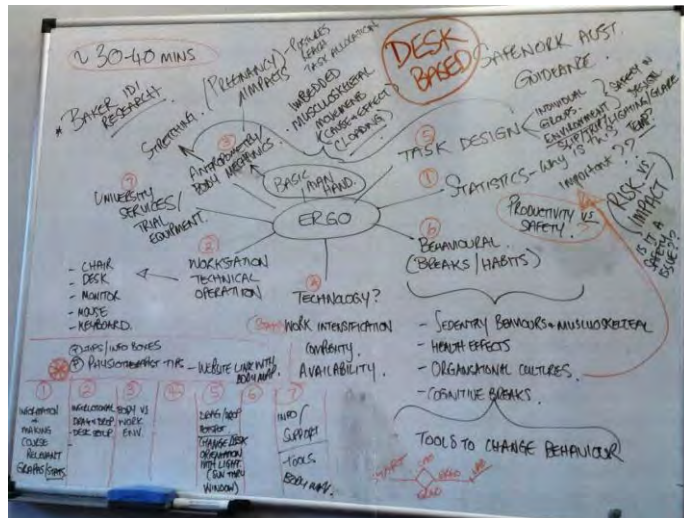 ~ 30-40 MINS
* BAKER IDI
RESEARCH.
STRETCHING.
(PREGNANCY)
IMPACTS
- POSTURES
REACH
TASK ALLOCATION
IMBEDDED
MUSCULOSKELETAL
MOVEMENTS
(CAUSE & EFFECT)
(LOADING)
DESK
BASED
SAFEWORK AUST.
GUIDANCE.
INDIVIDUAL
GROUPS.
ENVIRONMENT
SAFETY IN
DESIGN
SLIP/TRIP/LIGHTING/GLARE
TEMP?
③
ANTROPOMETRY/
BODY MECHANICS.
BASIC
MAN
HAND.
ERGO
⑤
TASK DESIGN
①
STATISTICS - WHY IS THIS
IMPORTANT??
PRODUCTIVITY VS
SAFETY.
RISK VS
IMPACT
IS IT A
SAFETY
ISSUE??
⑦
UNIVERSITY
SERVICES/
TRIAL
EQUIPMENT.
②
WORKSTATION
TECHNICAL
OPERATION
- CHAIR
- DESK
- MONITOR
- MOUSE
- KEYBOARD.
④
TECHNOLOGY?
WORK INTENSIFICATION
COMPLEXITY
AVAILABILITY.
⑥
BEHAVIOURAL.
(BREAKS/HABITS)
- SEDENTRY BEHAVOURS & MUSCULOSKELTEAL
- HEALTH EFFECTS
- ORGANSATIONAL CULTURES.
- COGNITIVE BREAKS
TOOLS TO CHANGE BEHAVIOUR
TIPS/INFO BOXES
PHYSIOTHERAPIST - TIPS - WEBSITE LINK WITH
BODY MAP.
①
INFORMATION
MAKING
COURSE
RELEVANT
GRAPHS/STATS
②
DRAG & DROP
- DESK SETUP.
③
BODY VS
WORK
ENV.
④
⑤
DRAG/DROP
HOTSPOT
CHANGE DESK
ORIENTATION
WITH LIGHT.
(SUN THRU
WINDOW)
⑥
⑦
INFO/
SUPPORT
- TOOLS
BODY MAP.
START